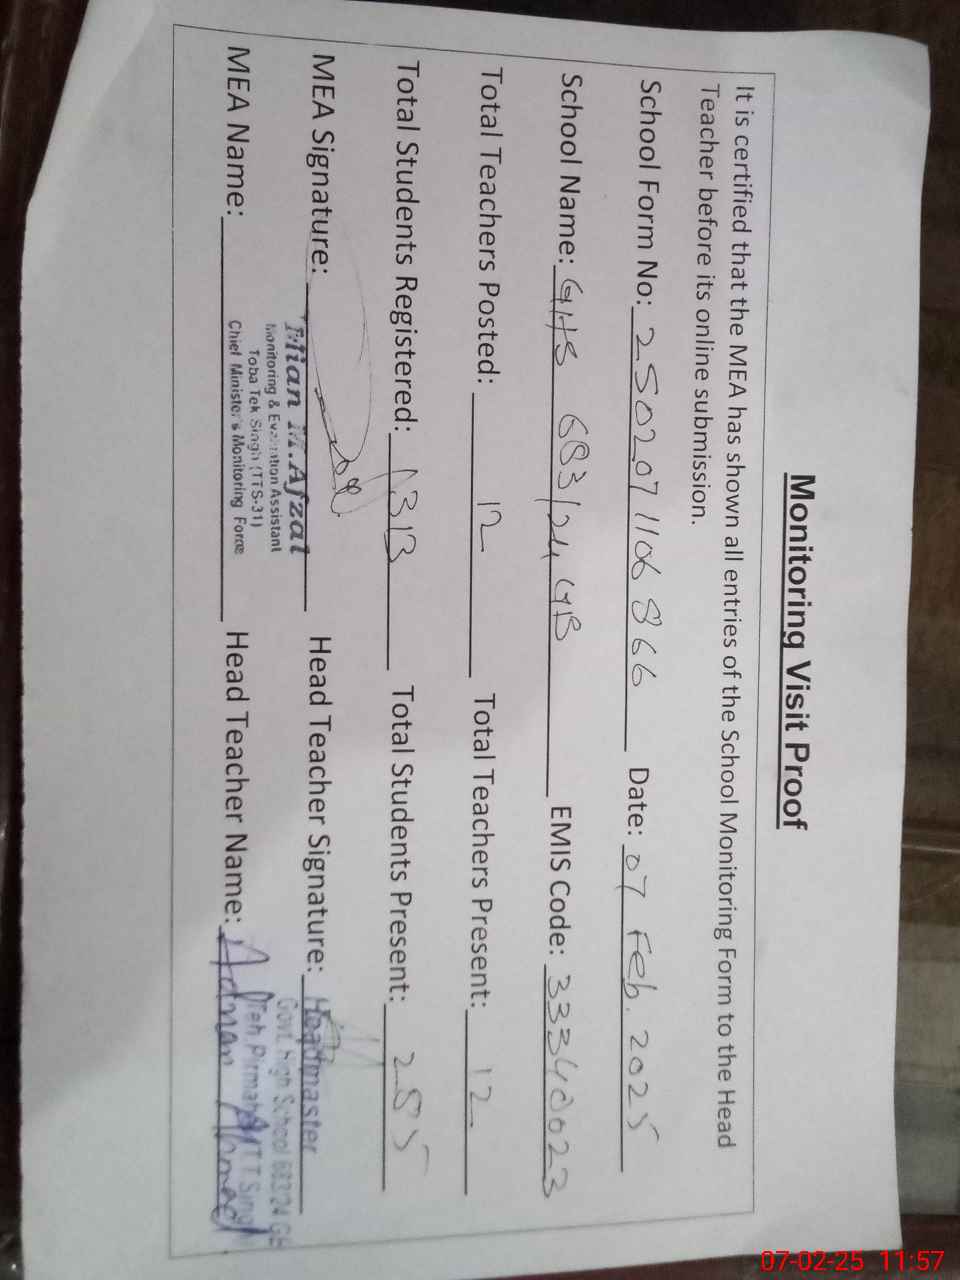 Monitoring Visit Proof
It is certified that the MEA has shown all entries of the School Monitoring Form to the Head
Teacher before its online submission.
School Form No: 2502071106866 Date: 07 Feb. 2025
School Name: GHS 683/24 GB EMIS Code: 33340023
Total Teachers Posted: 12 Total Teachers Present: 12
Total Students Registered: 313 Total Students Present: 285
MEA Signature: Head Teacher Signature:
Mian M. Afzal
Monitoring & Evaluation Assistant
Toba Tek Singh (TTS-31)
Chief Minister's Monitoring Force
Headmaster
Govt. High School 683/24 GB
Teh Pirmahal T.T. Singh
MEA Name: Head Teacher Name: Adnan Ahmed
07-02-25 11:57